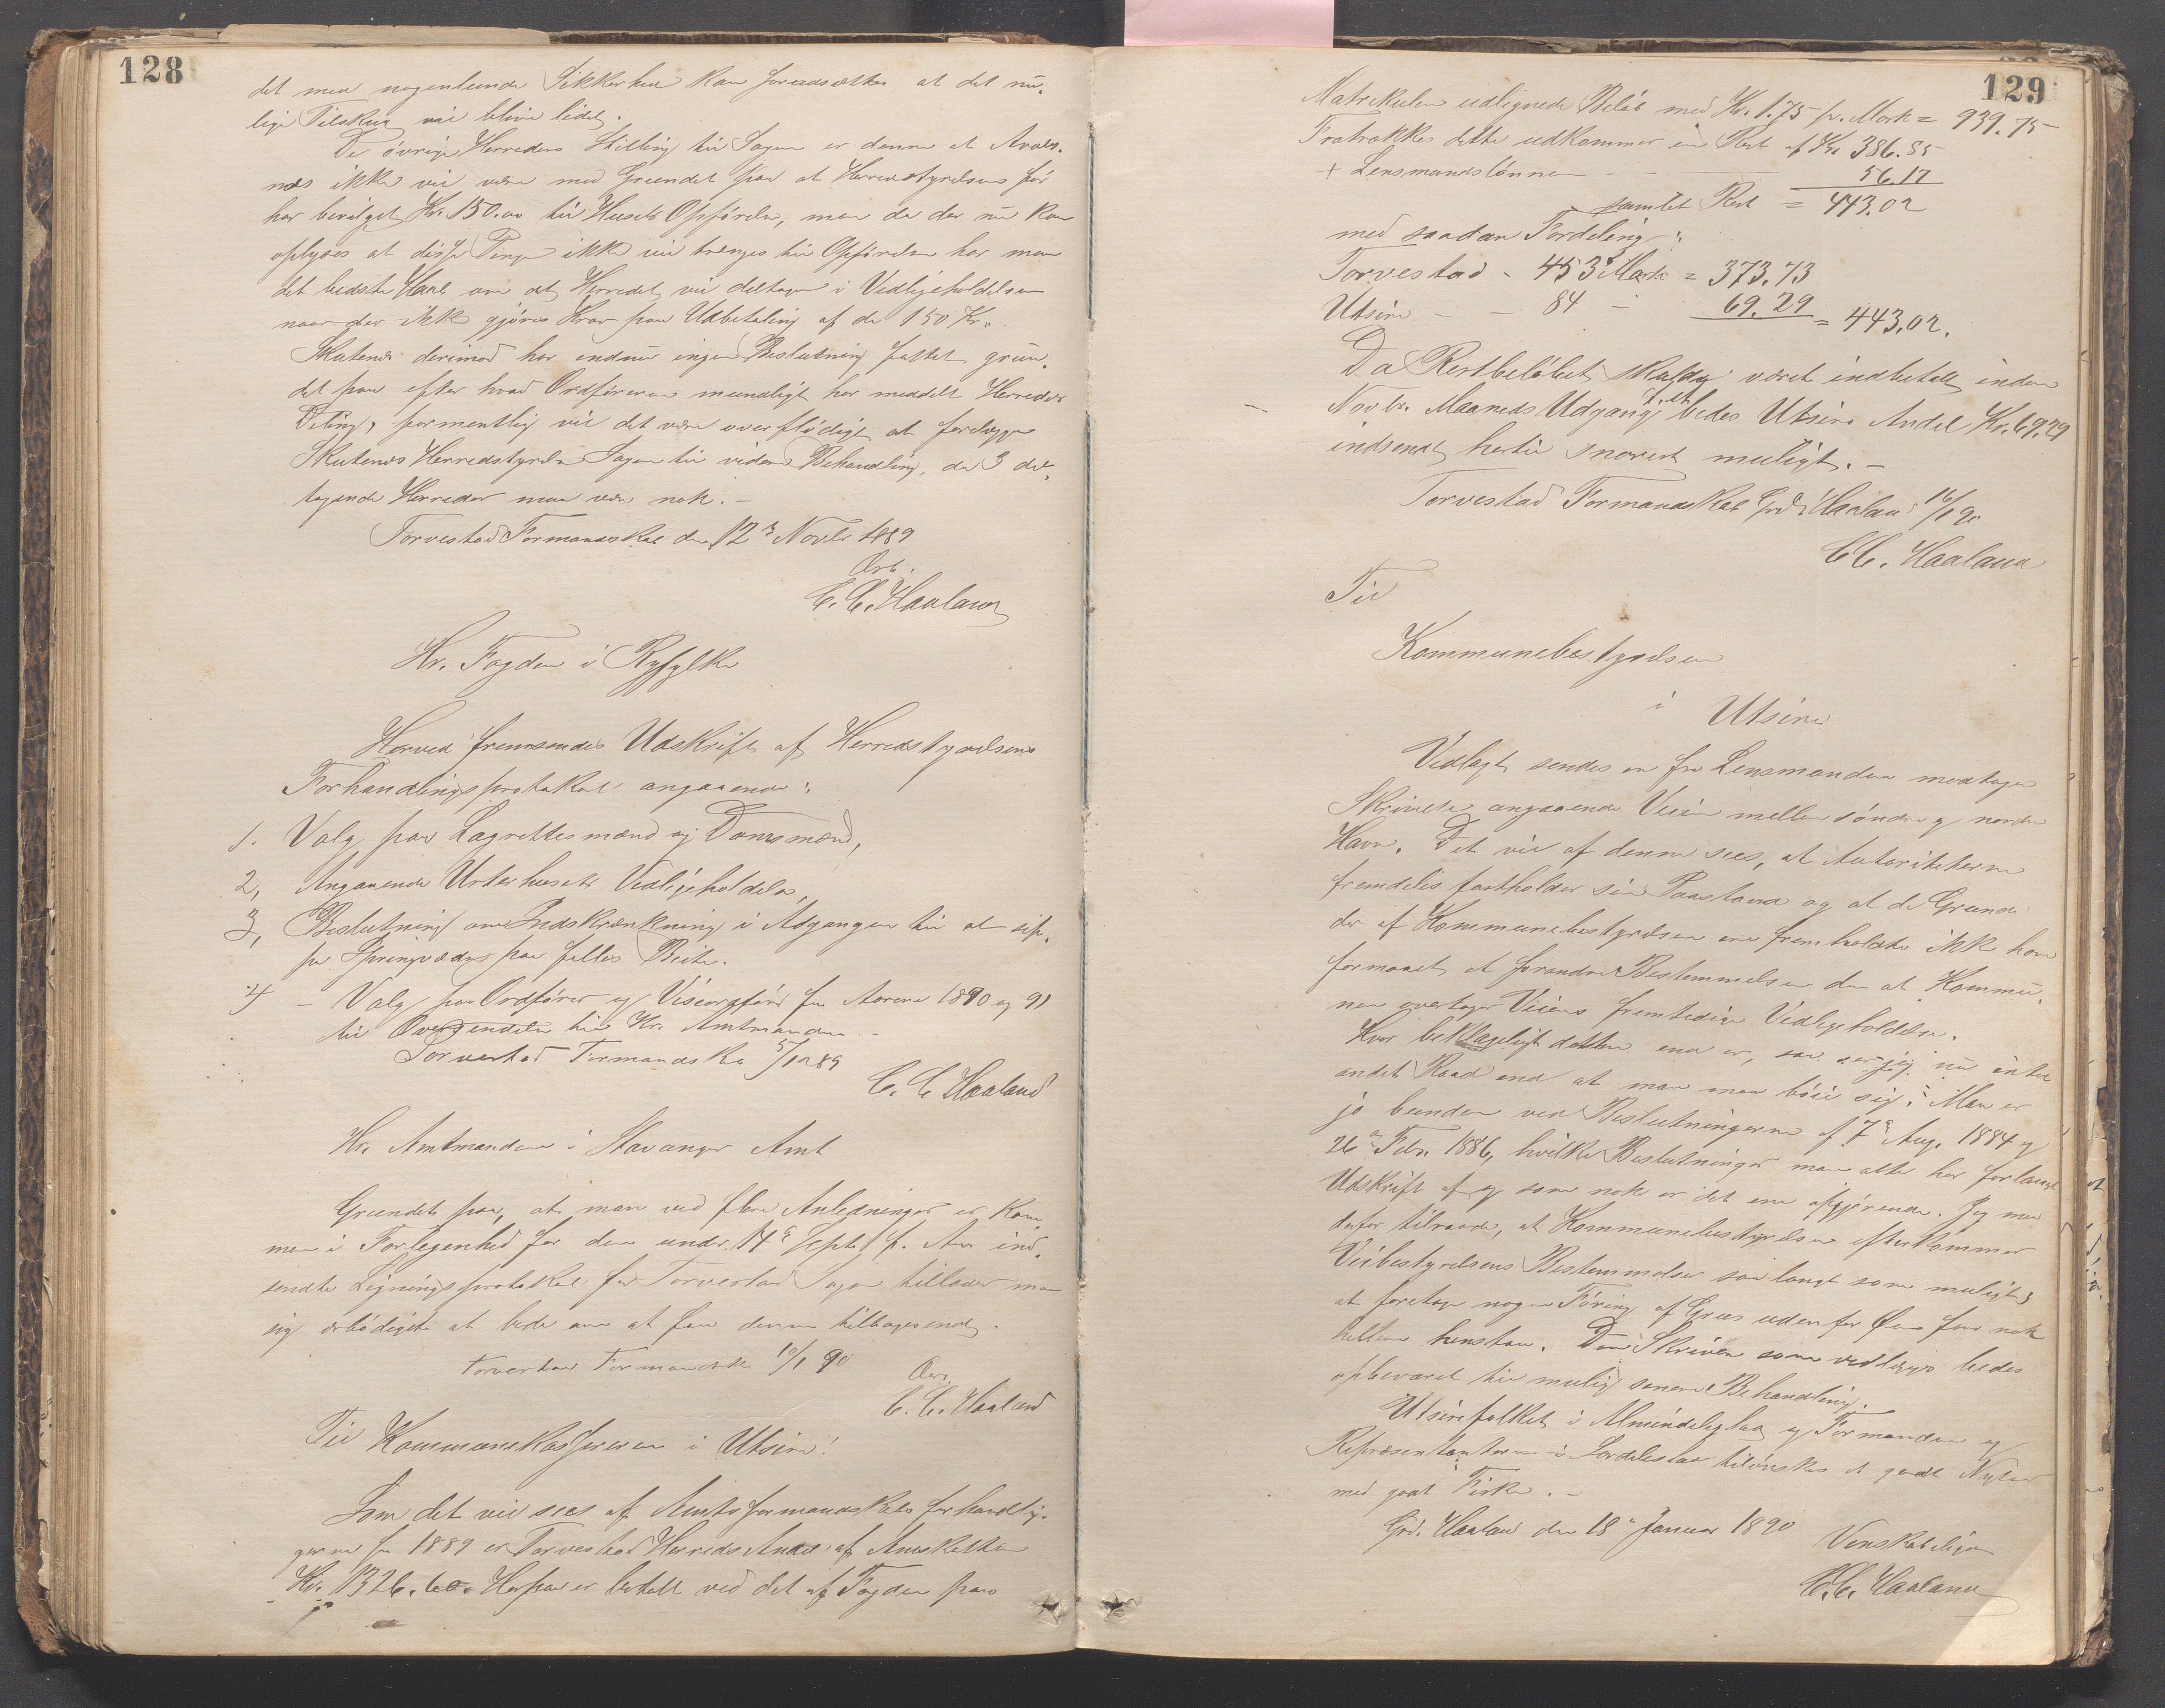 128
det med nogenlunde Sikkerhed kan forudsættes at det nu-
lige Tilskud vil blive lidet.
De øvrige Herreders Stilling til Sagen er denne at Avalds-
næs ikke vil være med Grundet paa at Herredstyrelsen før
har bevilget Kr. 150.00 til Husets Opførelse, men da der nu kan
oplyses at disse Penge ikke vil trænges til Opførelsen har man
det bedste Haab om at Herredet vil deltage i Vedligeholdelsen
naar der ikke gjøres Krav paa Udbetaling af de 150 Kr.
Skutenes derimod har endnu ingen Beslutning fattet grun-
det paa efter hvad Ordføreren mundligt har meddelt Herredets
Deling, formentlig vil det være overflødigt at forelægge
Skutenes Herredstyrelse Sagen til videre Behandling, da 3 del-
tagende Herreder maa være nok. -
Torvestad Formandskab den 12te Novbr 1889
Ærb.
C. C. Haaland
Hr. Fogden i Ryfylke
Herved fremsendes Udskrift af Herredstyrelsens
Forhandlingsprotokol angaaende:
1. Valg paa Lagrettesmænd og Domsmænd,
2, Angaaende Vedligeholdelse,
3, Beslutning om Indskrænkning i Adgangen til at slip-
pe paa fælles Beite.
4 - Valg paa Ordfører og Viseordfører for Aarene 1890 og 91
til Oversendelse til Hr. Amtmanden -
Torvestad Formandskab 5/12 89
C. C Haaland
Hr. Amtmanden i Stavanger Amt
Grundet paa, at man ved flere Anledninger er kom-
men i Forlegenhed for den under 14de Septbr f. Aar ind-
sendte Ligningsprotokol for Torvestad Sogn tillader man
sig ærbødigst at bede om at faa denne tilbagesendt.
Torvestad Formandsk 10/1 90
Ærb.
C. C. Haaland
Til Kommunekassereren i Utsire!
Som det vil sees af Amtsformandskabs forhandlin-
gerne for 1889 er Torvestad Herreds Andel af Amtskatten
Kr. 1326.60. Herpaa er betalt ved det af Fogden paa
129
Matrikulen udlignede Beløb med Kr. 1.75 pr. Mark = 939.75
Fratrækkes dette udkommer en Rest af Kr. 386.85
+ Lensmandslønnen - - 56.17
samlet Rest = 443.02
med saadan Fordeling:
Torvestad - 453 Mark = 373.73
Utsire - - 84 - 69.29 = 443.02.
Da Restbeløbet skulde været indbetalt inden
Novbr. Maaneds Udgang, bedes Utsires Andel Kr. 69.29
indsendt hertil snarest muligt. -
Torvestad Formandskab Grd. Haaland 16/1 90
C C. Haaland
Til
Kommunebestyrelsen
i Utsire
Vedlagt sendes en fra Lensmanden modtagen
Skrivelse angaaende Veien mellem søndre og nordre
Havn. Det vil af denne sees, at Autoriteterne
fremdeles fastholder sin Paastand og at de Grunde
der af Kommunebestyrelsen ere fremholdte ikke have
formaaet at forandre Bestemmelsen den at Kommu-
nen overtager Veiens fremtidige Vedligeholdelse.
Hvor beklageligt dette end er, saa ser jeg nu intet
andet Raad end at man maa bøie sig; Man er
jo bunden ved Beslutningerne af 7de Aug. 1884 og
26de Febr. 1886, hvilke Beslutninger man atter har forlangt
Udskrift af og som nok er det ene afgjørende. Jeg maa
derfor tilraade, at Kommunebestyrelsen efterkommer
Veibestyrelsens Bestemmelser saa langt som muligt,
at foretage nogen Føring af Grus udenfor Øen faar nok
heller henstaa. Den Skrivelse som vedlægges bedes
opbevaret til mulig senere Behandling.
Utsirefolket i Almindelighed og Formanden og
Repræsentanterne i Særdeleshed tilønskes et godt Nytaar
med godt Fiske. -
Grd. Haaland den 18de Januar 1890
Venskabeligen
C. C. Haaland